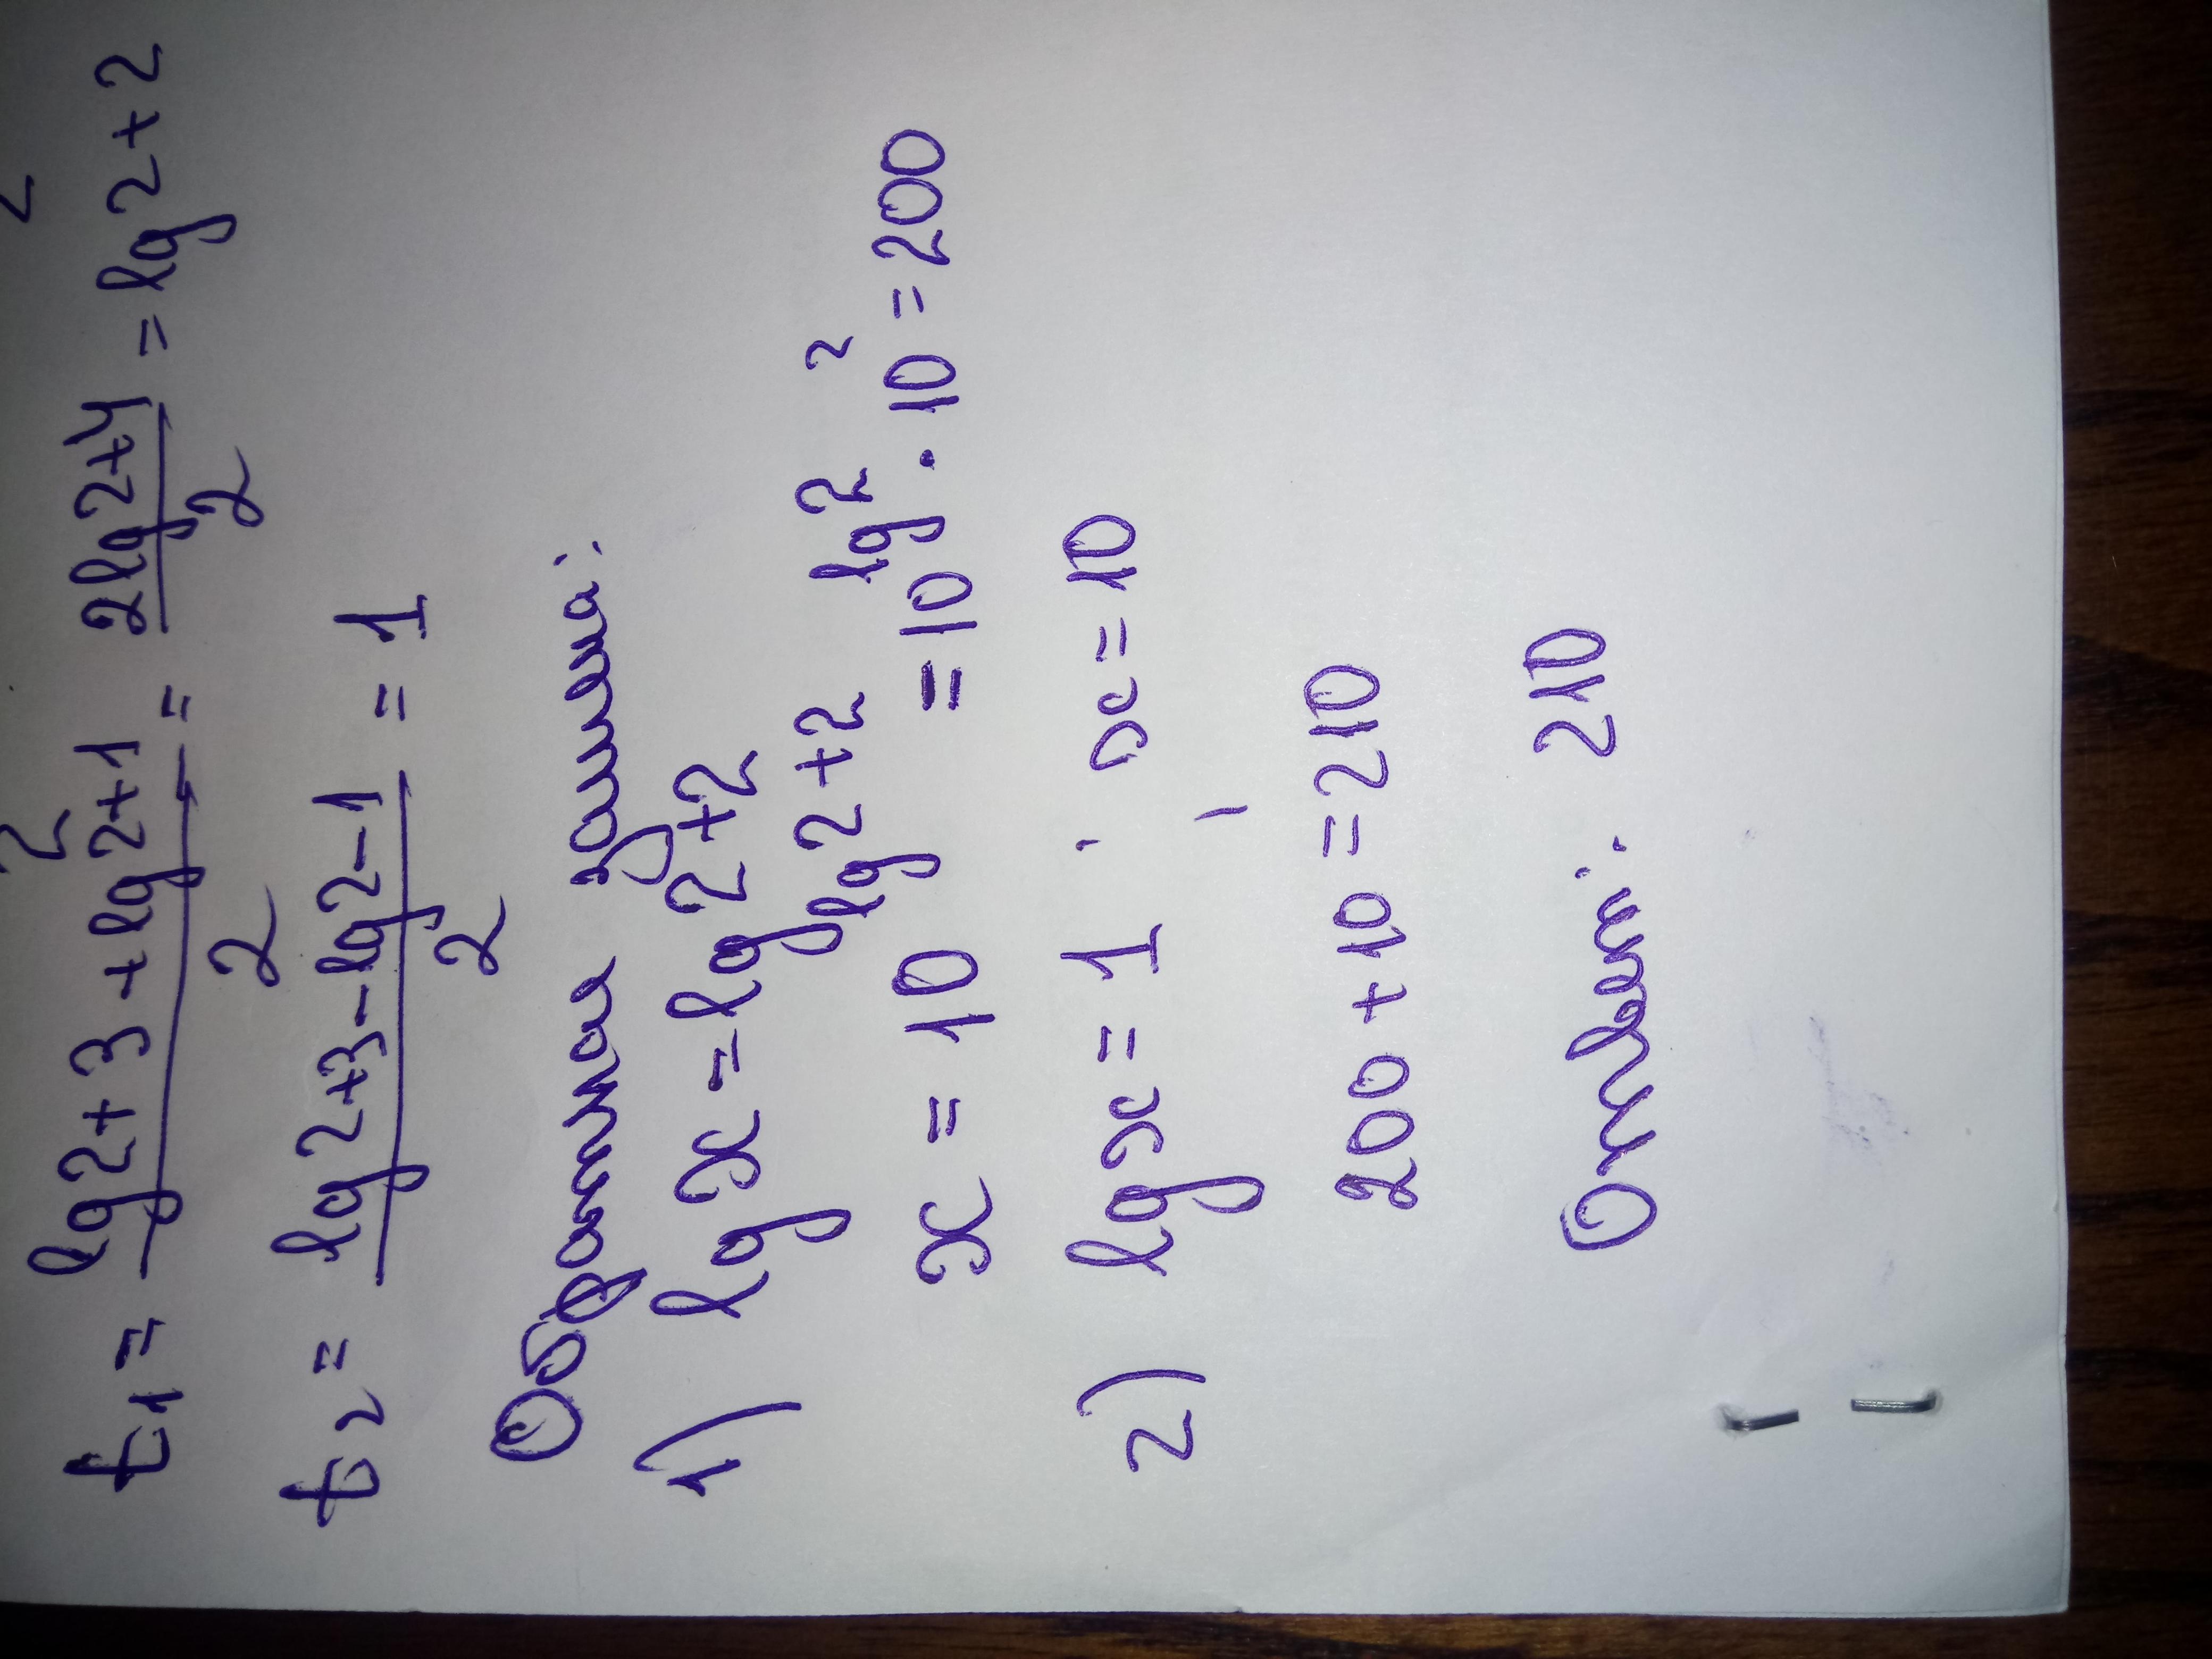 t₁ = (lg2+3+lg2+1)/2 = (2lg2+4)/2 = lg2+2
t₂ = (lg2+3-lg2-1)/2 = 1
Обратная замена:
1) lgx = lg2+2
x = 10^(lg2+2) = 10^(lg2) · 10² = 200
2) lgx = 1 ; x = 10
200+10=210
Ответ: 210